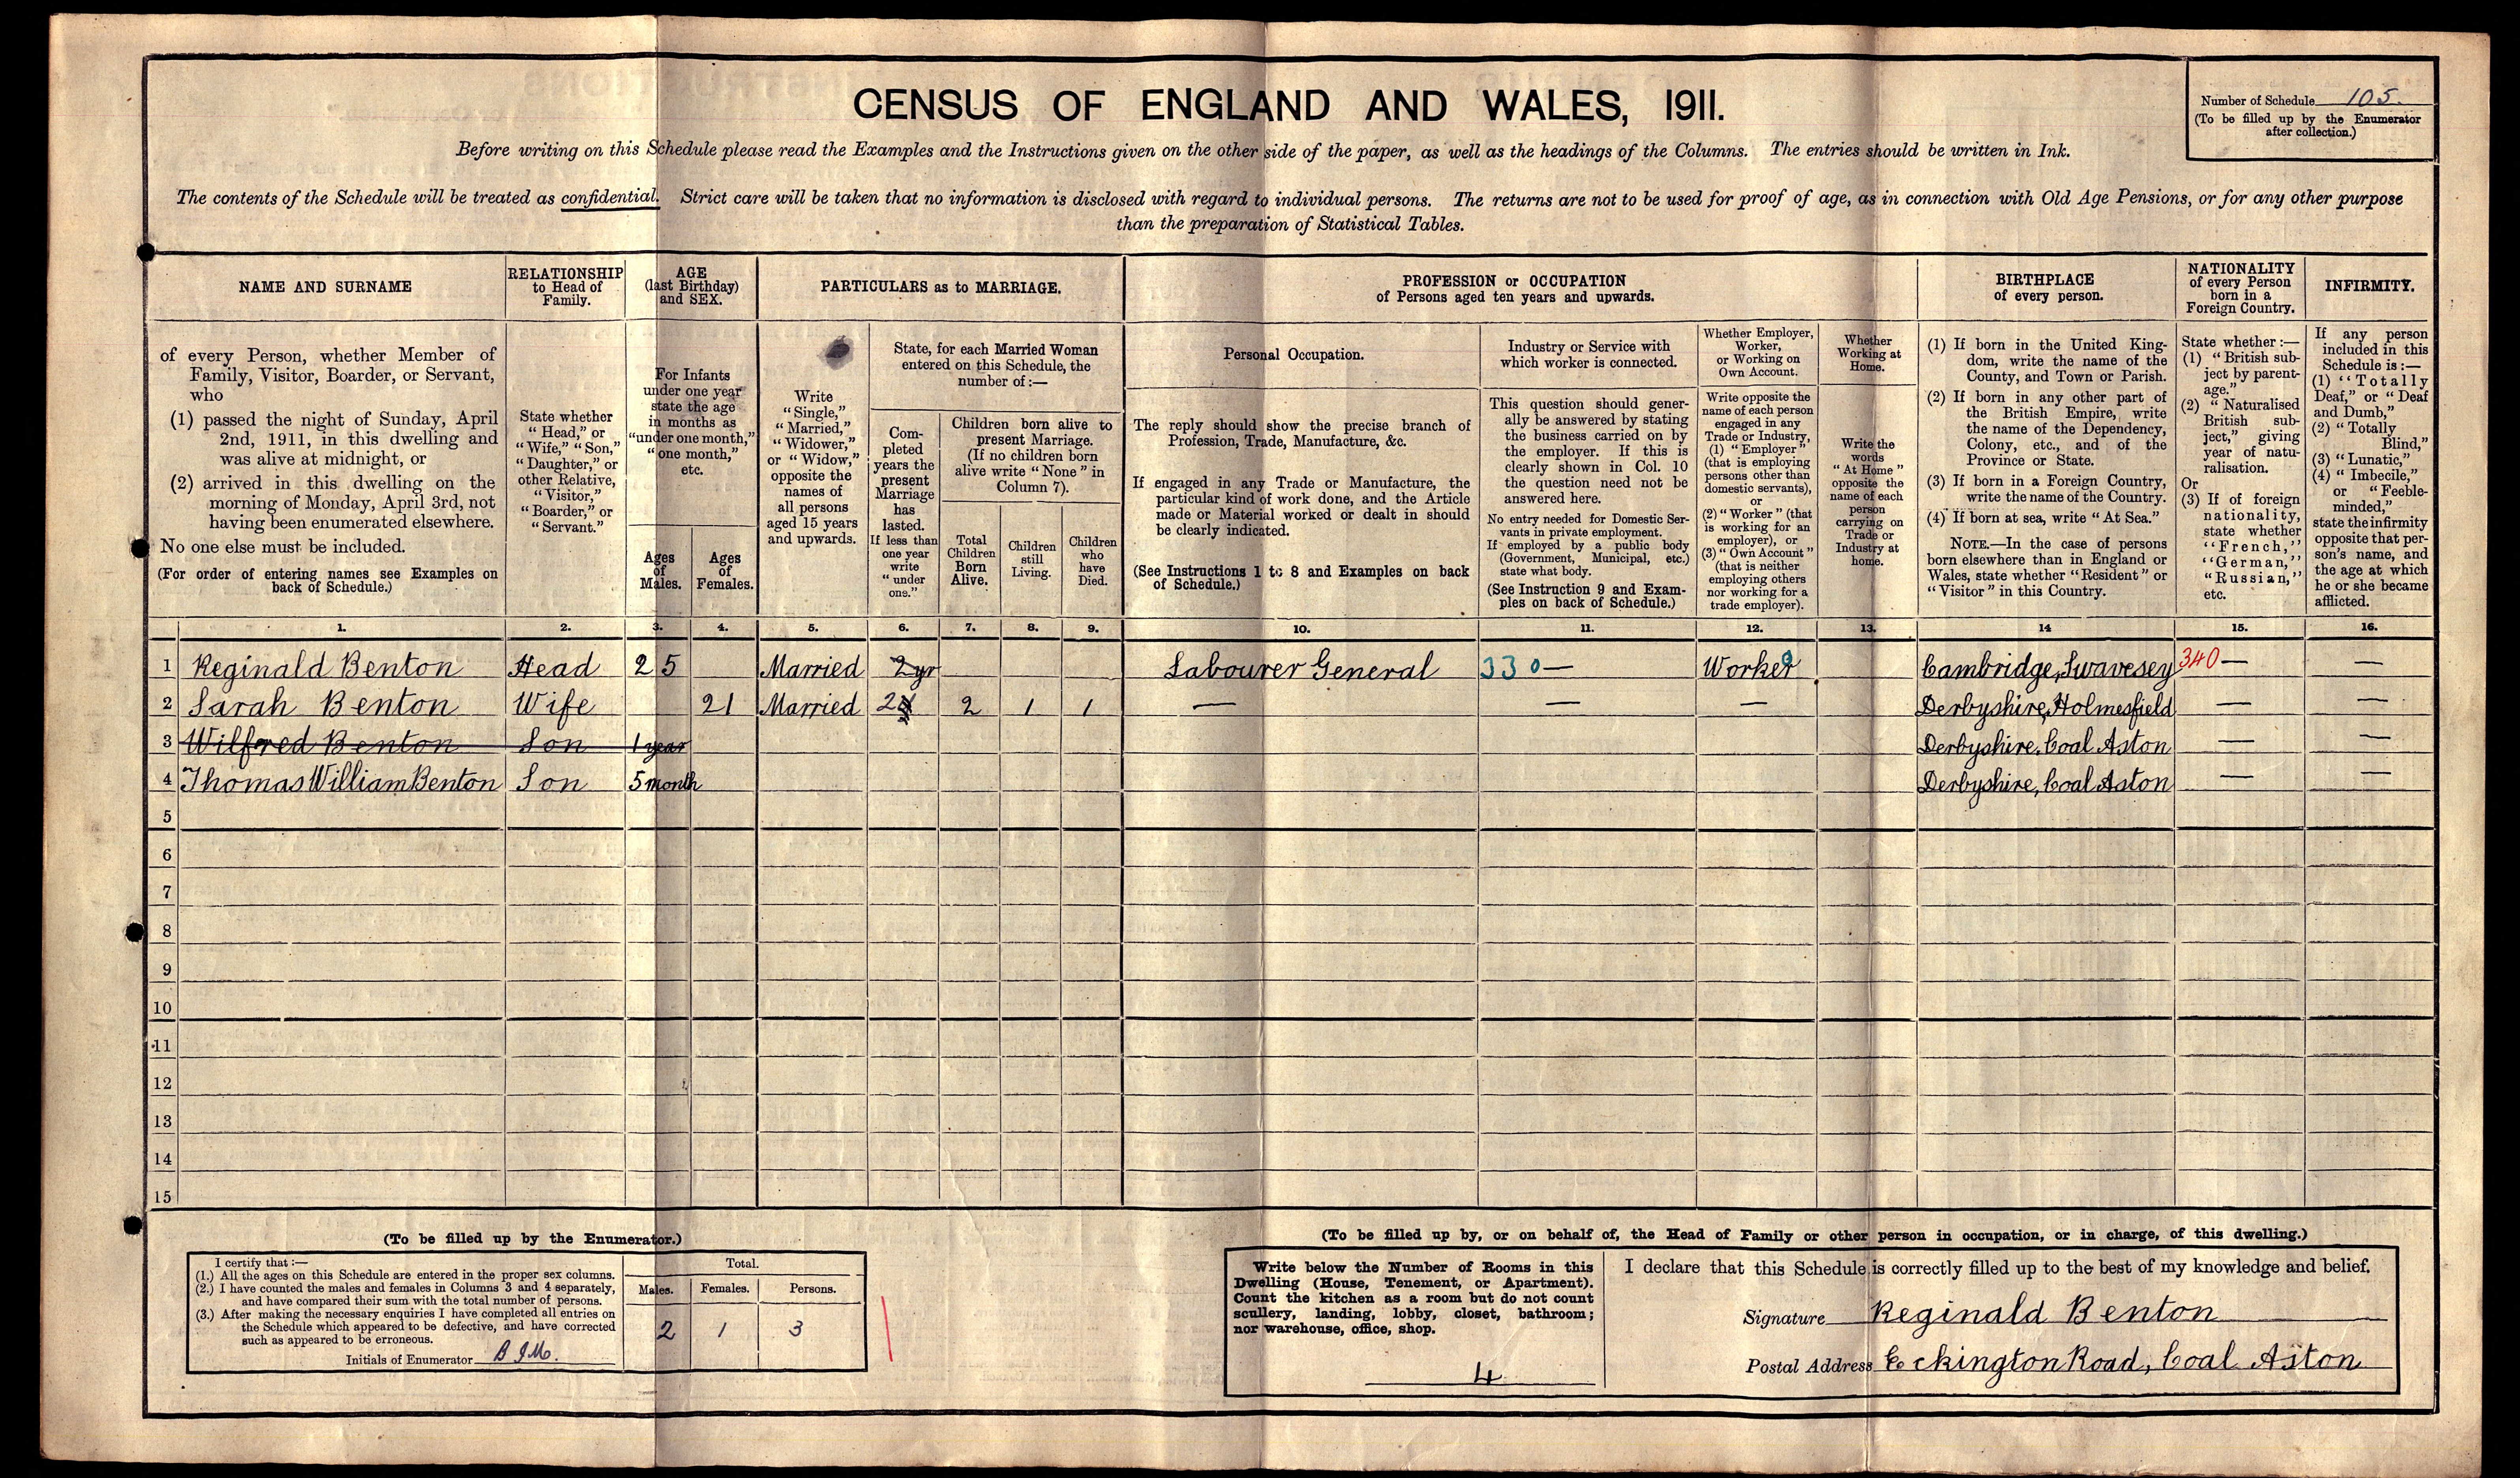 CENSUS OF ENGLAND AND WALES, 1911.
Number of Schedule 105.
(To be filled up by the Enumerator
after collection.)
Before writing on this Schedule please read the Examples and the Instructions given on the other side of the paper, as well as the headings of the Columns. The entries should be written in Ink.
The contents of the Schedule will be treated as confidential. Strict care will be taken that no information is disclosed with regard to individual persons. The returns are not to be used for proof of age, as in connection with Old Age Pensions, or for any other purpose
than the preparation of Statistical Tables.
NAME AND SURNAME
RELATIONSHIP
to Head of
Family.
AGE
(last Birthday)
and SEX.
PARTICULARS as to MARRIAGE.
PROFESSION or OCCUPATION
of Persons aged ten years and upwards.
BIRTHPLACE
of every person.
NATIONALITY
of every Person
born in a
Foreign Country.
INFIRMITY.
of every Person, whether Member of
Family, Visitor, Boarder, or Servant,
who
(1) passed the night of Sunday, April
2nd, 1911, in this dwelling and
was alive at midnight, or
(2) arrived in this dwelling on the
morning of Monday, April 3rd, not
having been enumerated elsewhere.
No one else must be included.
(For order of entering names see Examples on
back of Schedule.)
State whether
"Head," or
"Wife," "Son,"
"Daughter," or
other Relative,
"Visitor,"
"Boarder," or
"Servant."
For Infants
under one year
state the age
in months as
"under one month,"
"one month,"
etc.
Ages
of
Males.
Ages
of
Females.
Write
"Single,"
"Married,"
"Widower,"
or "Widow,"
opposite the
names of
all persons
aged 15 years
and upwards.
State, for each Married Woman
entered on this Schedule, the
number of:—
Com-
pleted
years the
present
Marriage
has
lasted.
If less than
one year
write
"under
one."
Children born alive to
present Marriage.
(If no children born
alive write "None" in
Column 7).
Total
Children
Born
Alive.
Children
still
Living.
Children
who
have
Died.
Personal Occupation.
The reply should show the precise branch of
Profession, Trade, Manufacture, &c.
If engaged in any Trade or Manufacture, the
particular kind of work done, and the Article
made or Material worked or dealt in should
be clearly indicated.
(See Instructions 1 to 8 and Examples on back
of Schedule.)
Industry or Service with
which worker is connected.
This question should gener-
ally be answered by stating
the business carried on by
the employer. If this is
clearly shown in Col. 10
the question need not be
answered here.
No entry needed for Domestic Ser-
vants in private employment.
If employed by a public body
(Government, Municipal, etc.)
state what body.
(See Instruction 9 and Exam-
ples on back of Schedule.)
Whether Employer,
Worker,
or Working on
Own Account.
Write opposite the
name of each person
engaged in any
Trade or Industry,
(1) "Employer"
(that is employing
persons other than
domestic servants),
or
(2) "Worker" (that
is working for an
employer), or
(3) "Own Account"
(that is neither
employing others
nor working for a
trade employer).
Whether
Working at
Home.
Write the
words
"At Home"
opposite the
name of each
person
carrying on
Trade or
Industry at
home.
(1) If born in the United King-
dom, write the name of the
County, and Town or Parish.
(2) If born in any other part of
the British Empire, write
the name of the Dependency,
Colony, etc., and of the
Province or State.
(3) If born in a Foreign Country,
write the name of the Country.
(4) If born at sea, write "At Sea."
NOTE.—In the case of persons
born elsewhere than in England or
Wales, state whether "Resident" or
"Visitor" in this Country.
State whether:—
(1) "British sub-
ject by parent-
age."
(2) "Naturalised
British sub-
ject," giving
year of natu-
ralisation.
Or
(3) If of foreign
nationality,
state whether
"French,"
"German,"
"Russian,"
etc.
If any person
included in this
Schedule is:—
(1) "Totally
Deaf," or "Deaf
and Dumb,"
(2) "Totally
Blind,"
(3) "Lunatic,"
(4) "Imbecile,"
or "Feeble-
minded,"
state the infirmity
opposite that per-
son's name, and
the age at which
he or she became
afflicted.
1. 2. 3. 4. 5. 6. 7. 8. 9. 10. 11. 12. 13. 14 15. 16.
1 Reginald Benton Head 25 Married 2 yr Labourer General 330 — Worker 0 Cambridge, Swavesey 340 — —
2 Sarah Benton Wife 21 Married 2 2 1 1 — — — Derbyshire, Holmesfield — —
3 Wilfred Benton Son 1 year Derbyshire, Coal Aston — —
4 Thomas William Benton Son 5 month Derbyshire, Coal Aston — —
5
6
7
8
9
10
11
12
13
14
15
(To be filled up by the Enumerator.)
I certify that:—
(1.) All the ages on this Schedule are entered in the proper sex columns.
(2.) I have counted the males and females in Columns 3 and 4 separately,
and have compared their sum with the total number of persons.
(3.) After making the necessary enquiries I have completed all entries on
the Schedule which appeared to be defective, and have corrected
such as appeared to be erroneous.
Initials of Enumerator
Total.
Males. Females. Persons.
2 1 3
(To be filled up by, or on behalf of, the Head of Family or other person in occupation, or in charge, of this dwelling.)
Write below the Number of Rooms in this
Dwelling (House, Tenement, or Apartment).
Count the kitchen as a room but do not count
scullery, landing, lobby, closet, bathroom;
nor warehouse, office, shop.
4
I declare that this Schedule is correctly filled up to the best of my knowledge and belief.
Signature Reginald Benton
Postal Address Eckington Road, Coal Aston